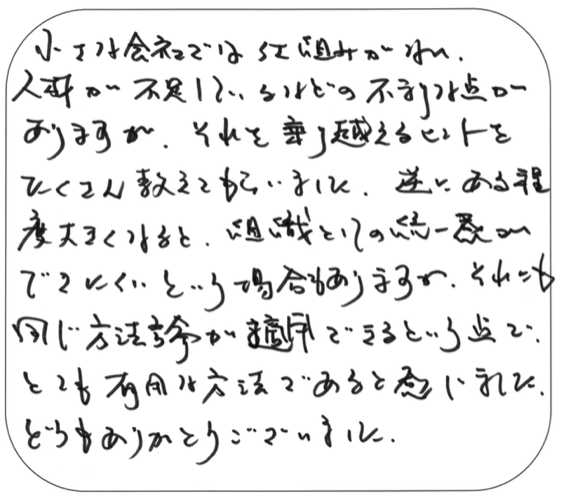 小さな会社では仕組みがない、
人材が不足しているなどの不利な点が
ありますが、それを乗り越えるヒントを
たくさん教えてもらいました。逆にある程
度大きくなると、組織としての統一感が
できにくいという場合もありますが、それにも
同じ方法論が適用できるという点で、
とても有用な方法であると感じました。
どうもありがとうございました。